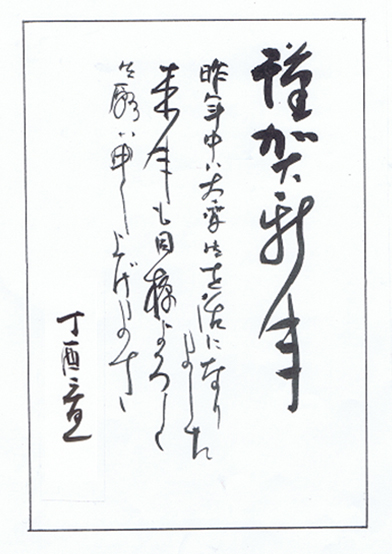 謹賀新年
昨年中は大変御世話になりました
来年も同様よろしく
御願い申し上げます
丁酉